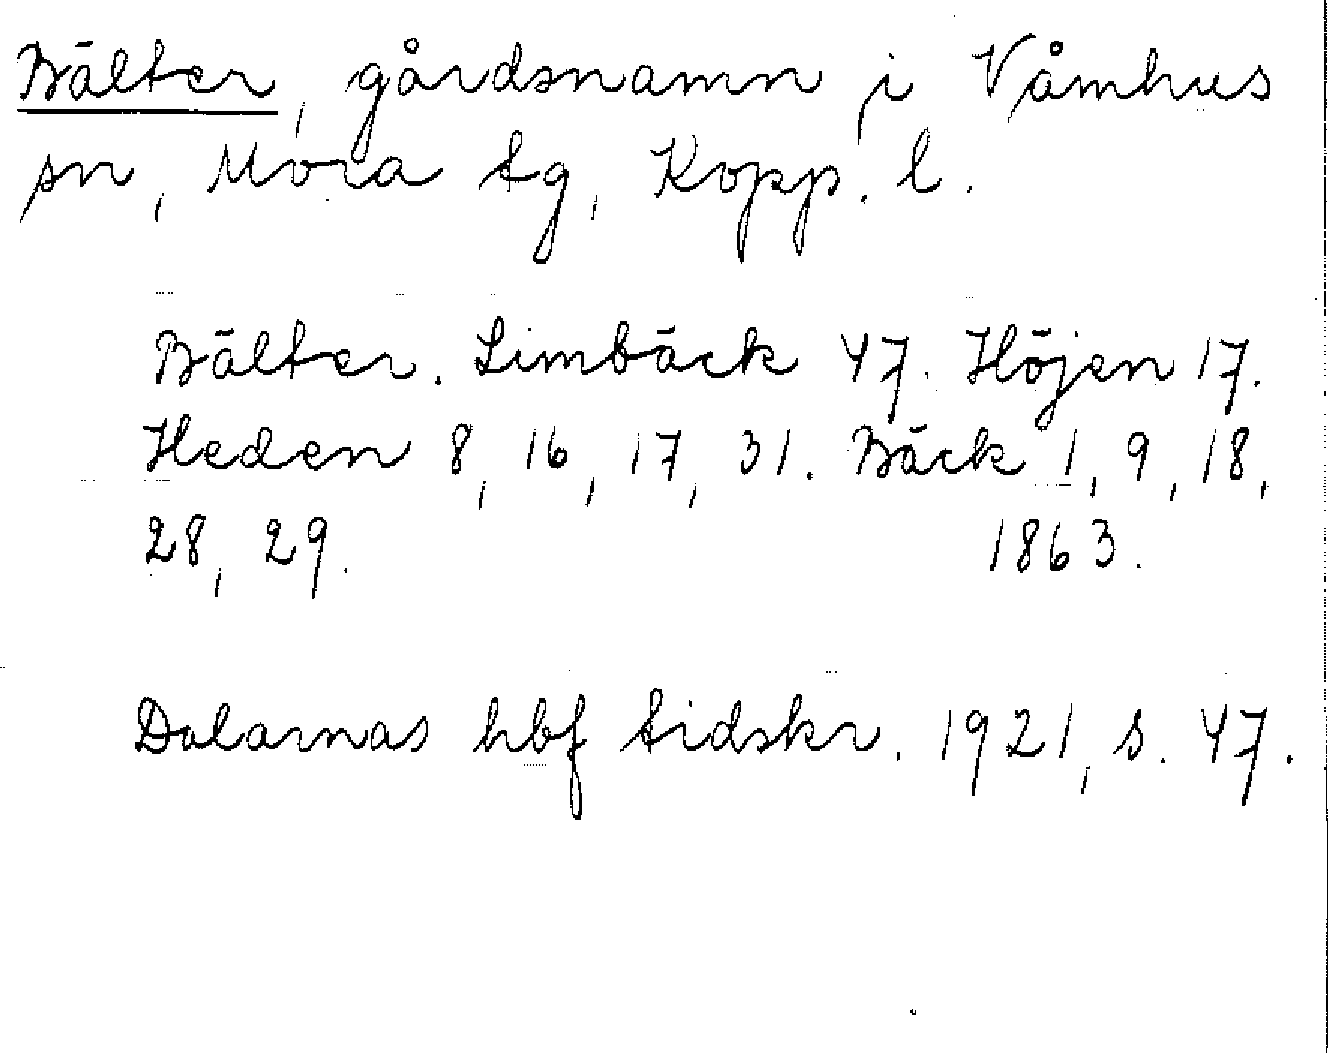 Bälter, gårdsnamn i Våmhus
sn, Mora tg, Kopp. l.
Bälter. Limbäck 47. Höjen 17.
Heden 8, 16, 17, 31. Bäck 1, 9, 18,
28, 29. 1863.
Dalarnas hbf tidskr. 1921, s. 47.